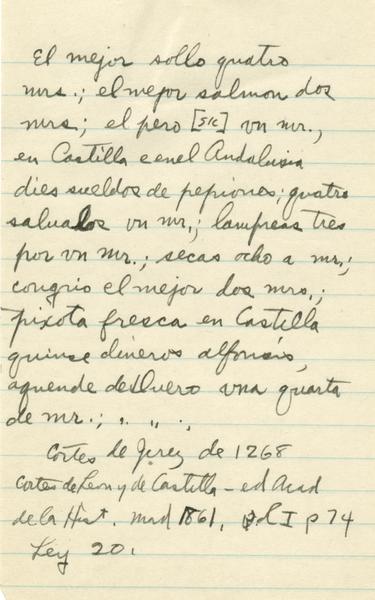 El mejor sollo quatro
mrs.; el mejor salmon dos
mrs; el pero [sic] vn mr.,
en Castilla e enel Andalusia
dies sueldos de pepiones; quatro
salualos vn mr.; lampreas tres
por vn mr.; secas ocho a mr.;
congrio el mejor dos mrs.;
pixota fresca en Castilla
quinse dineros alfonsis,
aquende deDuero vna quarta
de mr.; " " "
Cortes de Jerez de 1268
Cortes de Leon y de Castilla - ed Acad
de la Hist. Mad 1861, vol I p 74
Ley 20.